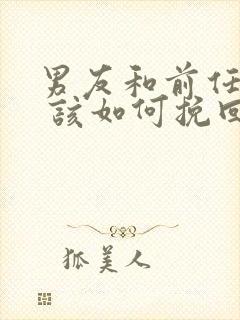 男友和前任
該如何挽回
狐美人